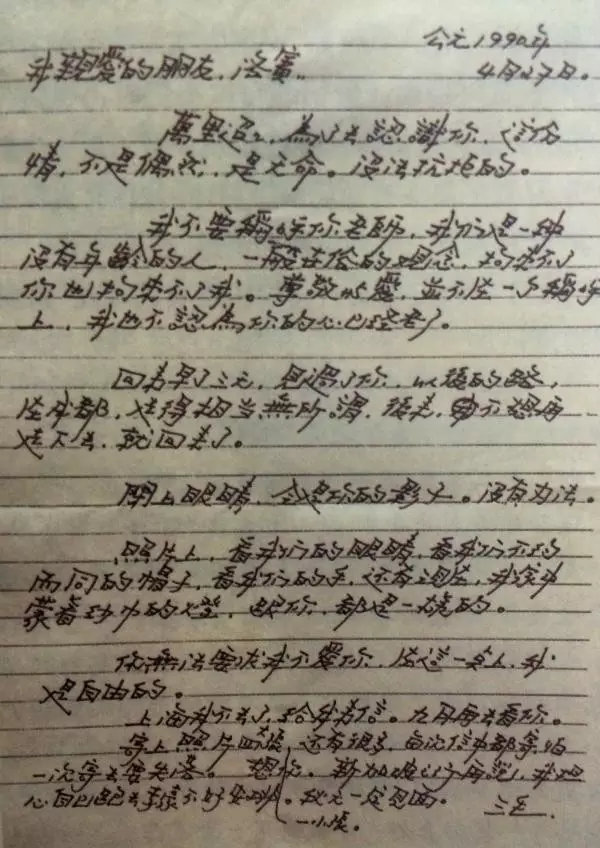 公元1990年
我親愛的朋友、洛賓:
4月27日。
萬里迢迢、為了去認識你、這份
情、不是偶然、是天命。沒法抗拒的。
我不要稱呼你老師、我們是一種
沒有年齡的人、一般世俗的觀念、拘束不了
你也拘束不了我。尊敬與愛、並不在一個稱呼
上、我也不認為你的心已經老了。
回來早了三天、見過了你、以後的路、
在成都、走得相當無所謂、後來、也不想再
走下去、就回來了。
閉上眼睛、全是你的影子。沒有辦法。
照片上、看我們的眼睛、看我們不約
而同的帽子、看我們的手、還有現在、我家中
蒙着紗巾的燈、跟你、都是一樣的。
你無法要求我不愛你、在這一點上、我
是自由的。
上海我不去了、給我來信。九月再去看你。
寄上照片四張、還有很多、每次信中都寄、怕
一次寄去要失落。想你、新加坡之行再說、我擔
心自己跑去手續不好安排。秋天一定見面。
三毛
一小張。